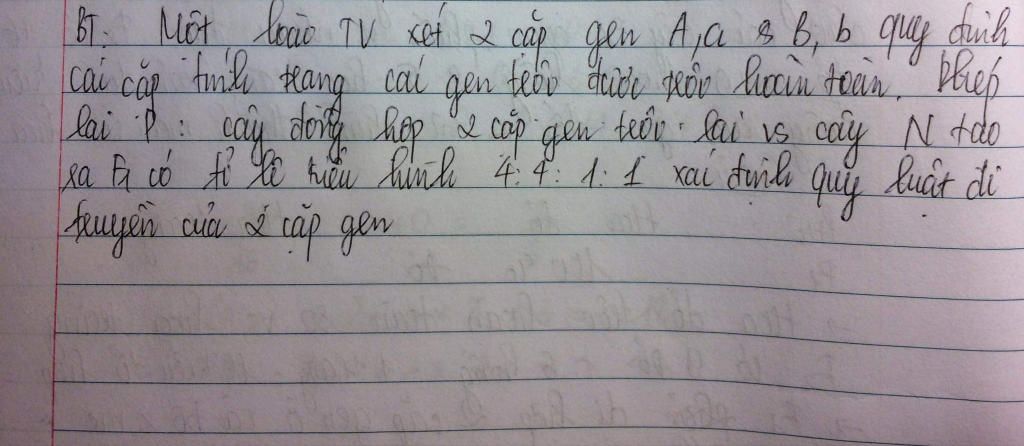 BT: Một loài TV xét 2 cặp gen A,a & B,b quy định
các cặp tính trạng các gen trội được trội hoàn toàn. Phép
lai P: cây đồng hợp 2 cặp gen trội lai vs cây N tạo
ra F1 có tỉ lệ kiểu hình 4:4:1:1 xác định quy luật di
truyền của 2 cặp gen